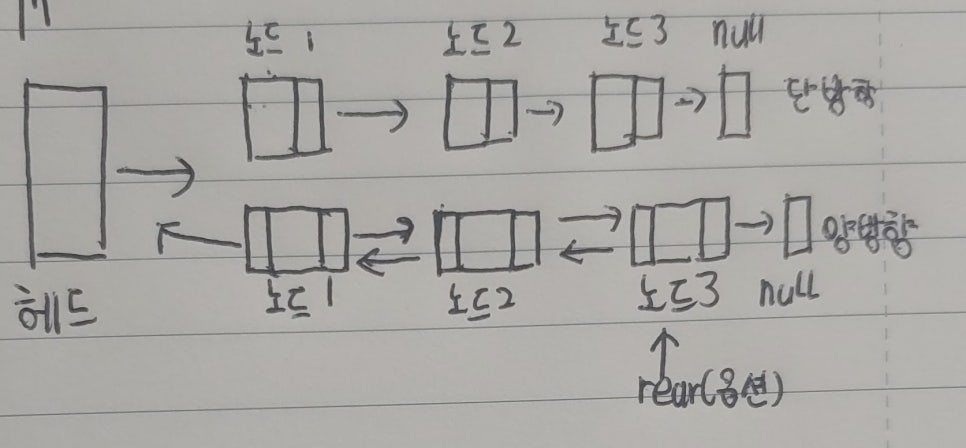 노드 1 노드 2 노드 3 null
단방향
양방향
헤드 노드 1 노드 2 노드 3 null
rear(옵션)